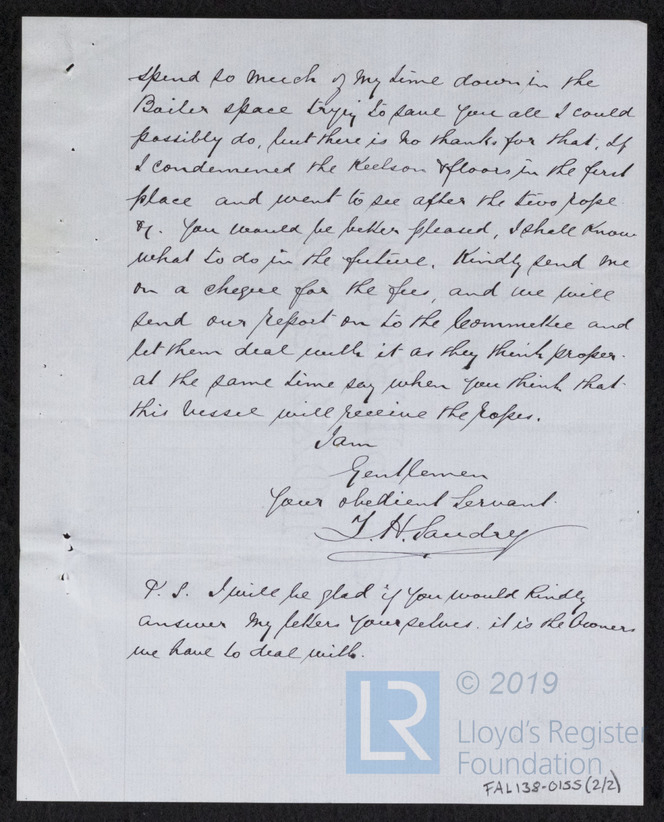 spend so much of my time down in the
Boiler space trying to save you all I could
possibly do, but there is no thanks for that. If
I condemened the Keelson & floors in the first
place and went to see after the two rope
&c. You would be better pleased, I shall know
what to do in the future. Kindly send me
on a cheque for the fees, and we will
send our report on to the Committee and
let them deal with it as they think proper.
at the same time say when you think that
this Vessel will receive the ropes.
I am
Gentlemen
Your obedient Servant
T. H. Sandry
P. S. I will be glad if you would Kindly
answer my letters yourselves. it is the Owners
we have to deal with.
© 2019
LR
Lloyd's Register
Foundation
FAL138-0155 (2/2)